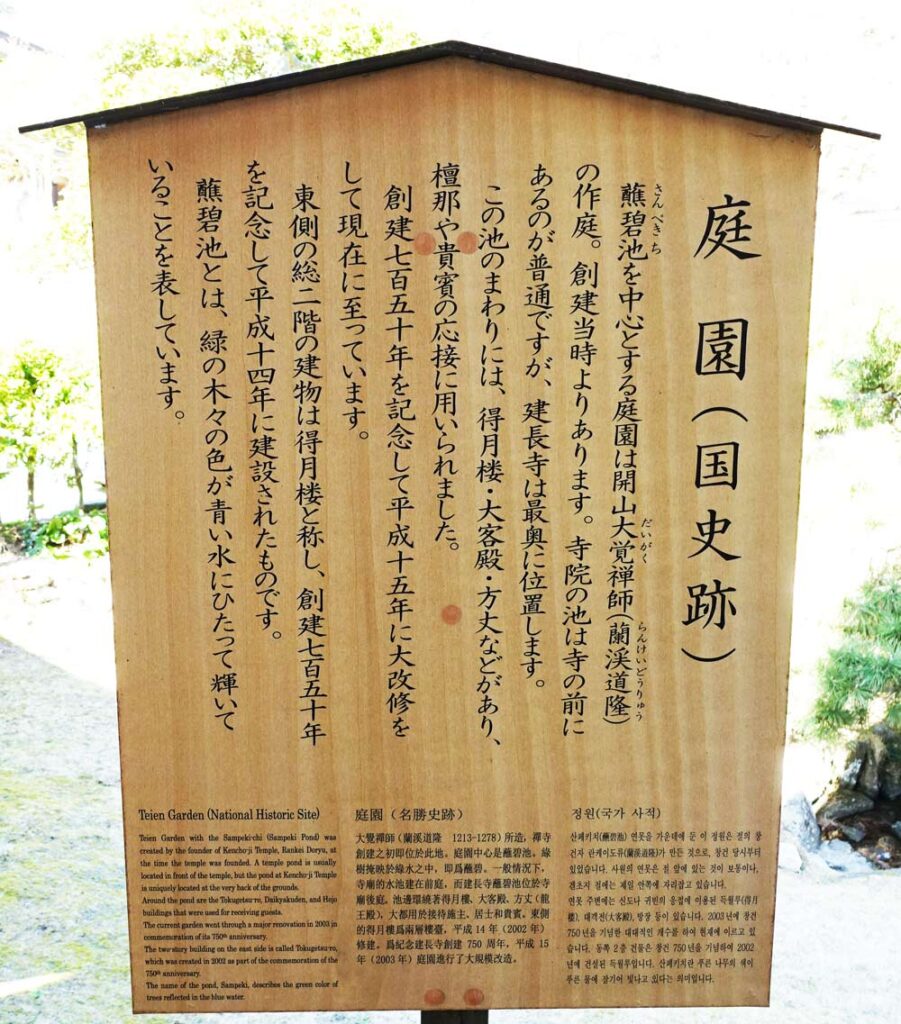 庭園(国史跡)
さんぺきち
蘸碧池を中心とする庭園は開山大覚禅師(蘭渓道隆)
だいがく
らんけいどうりゅう
の作庭。創建当時よりあります。寺院の池は寺の前に
あるのが普通ですが、建長寺は最奥に位置します。
この池のまわりには、得月楼・大客殿・方丈などがあり、
檀那や貴賓の応接に用いられました。
創建七百五十年を記念して平成十五年に大改修を
して現在に至っています。
東側の総二階の建物は得月楼と称し、創建七百五十年
を記念して平成十四年に建設されたものです。
蘸碧池とは、緑の木々の色が青い水にひたって輝いて
いることを表しています。
Teien Garden (National Historic Site)
Teien Garden with the Sampeki-chi (Sampeki Pond) was
created by the founder of Kencho-ji Temple, Rankei Doryu, at
the time the temple was founded. A temple pond is usually
located in front of the temple, but the pond at Kencho-ji Temple
is uniquely located at the very back of the grounds.
Around the pond are the Tokugetsu-ro, Daikyakuden, and Hojo
buildings that were used for receiving guests.
The current garden went through a major renovation in 2003 in
commemoration of its 750th anniversary.
The two-story building on the east side is called Tokugetsu-ro,
which was created in 2002 as part of the commemoration of the
750th anniversary.
The name of the pond, Sampeki, describes the green color of
trees reflected in the blue water.
庭園(名勝史跡)
大覺禪師(蘭溪道隆 1213-1278)所造,禪寺
創建之初即位於此地。庭園中心是蘸碧池。綠
樹掩映於綠水之中,即爲蘸碧。一般情況下,
寺廟的水池建在前庭,而建長寺蘸碧池位於寺
廟後庭。池邊環繞著得月樓、大客殿、方丈(龍
王殿),大都用於接待施主、居士和貴賓。東側
的得月樓爲兩層樓臺,平成 14 年(2002 年)
修建。爲紀念建長寺創建 750 周年,平成 15
年(2003 年)庭園進行了大規模改造。
정원(국가 사적)
산페키치(蘸碧池) 연못을 가운데에 둔 이 정원은 절의 창
건자 란케이도류(蘭溪道隆)가 만든 것으로, 창건 당시부터
있었습니다. 사원의 연못은 절 앞에 있는 것이 보통이나,
겐초지 절에는 제일 안쪽에 자리잡고 있습니다.
연못 주변에는 신도나 귀빈의 응접에 이용된 득월루(得月
樓), 대객전(大客殿), 방장 등이 있습니다. 2003년에 창건
750년을 기념한 대대적인 개수를 하여 현재에 이르고 있
습니다. 동쪽 2층 건물은 창건 750년을 기념하여 2002
년에 건설된 득월루입니다. 산페키치란 푸른 나무의 색이
푸른 물에 잠기어 빛나고 있다는 의미입니다.